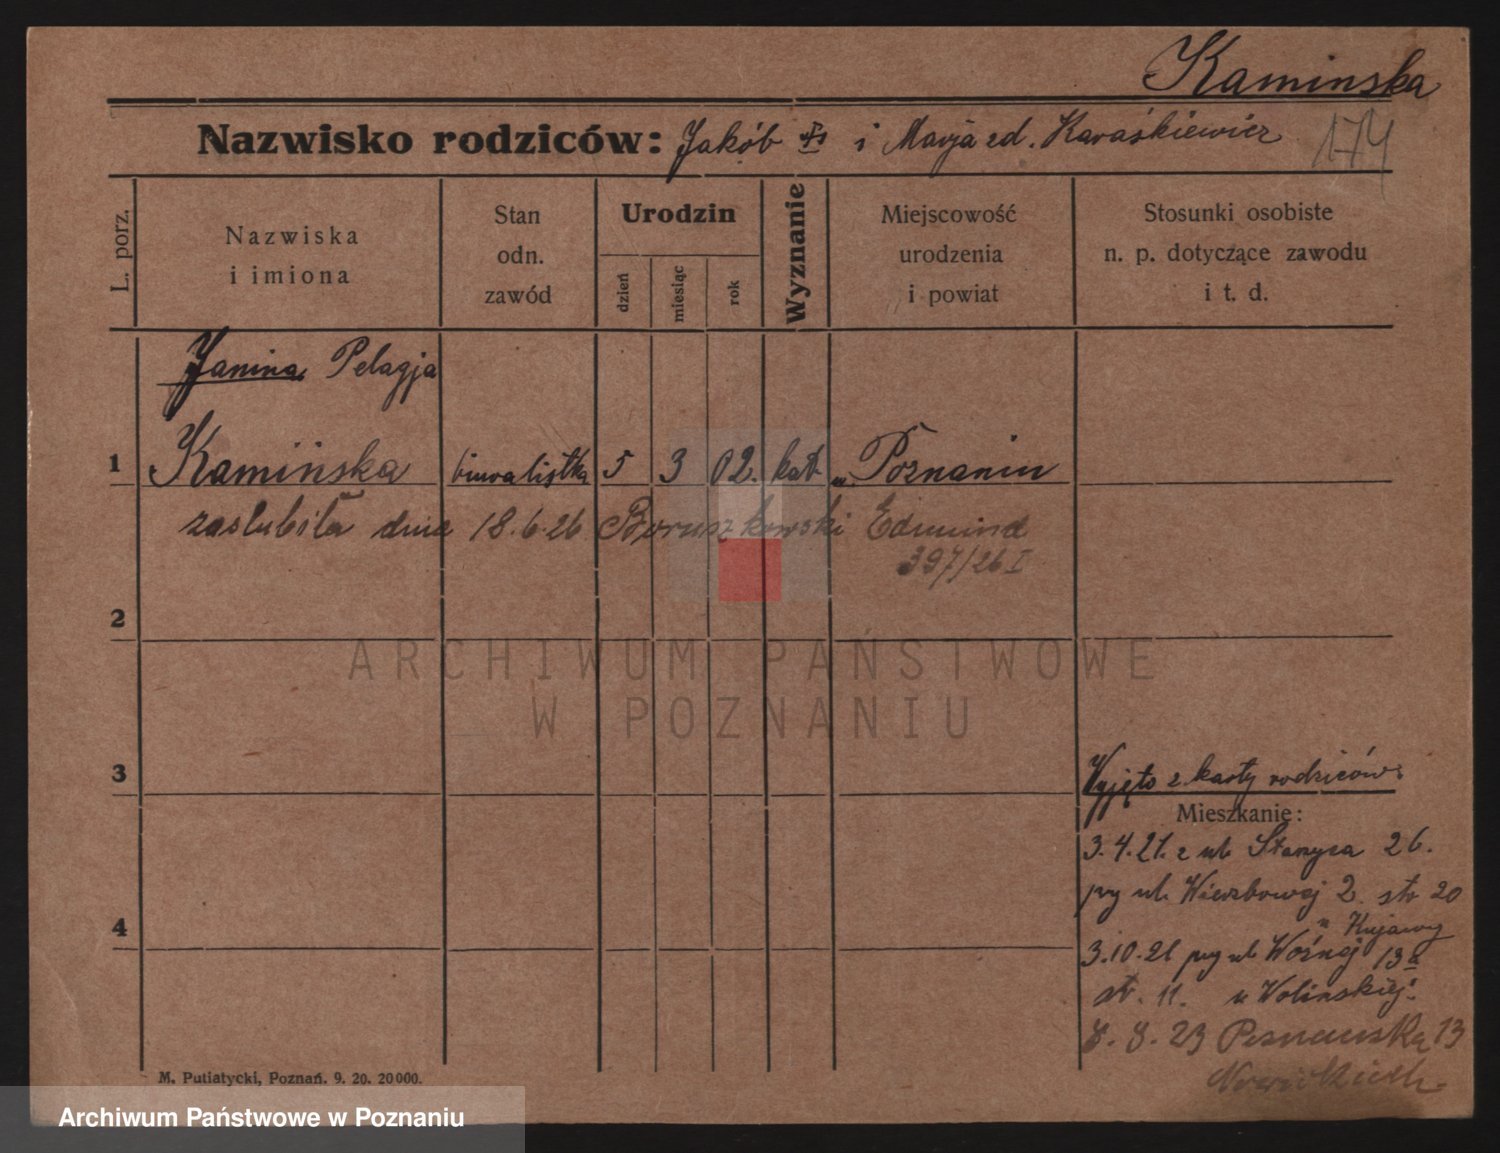 Kaminska
Nazwisko rodziców: Jakób i Marja zd. Karaśkiewicz
174
L. porz.
Nazwiska
i imiona
Stan
odn.
zawód
Urodzin
dzień
miesiąc
rok
Wyznanie
Miejscowość
urodzenia
i powiat
Stosunki osobiste
n. p. dotyczące zawodu
i t. d.
Janina Pelagja
1 Kamińska biuralistka 5 3 02. kat. Poznaniu
zaslubiła dnia 18.6.26 Boruszkowski Edmund
397/26 I
2
3
4
Wyjęto z karty rodziców.
Mieszkanie:
3.4.21. z ul. 26.
przy ul. Wierzbowej 2. st. 20
u Kujawy
3.10.21 przy ul. Woźnej 13a
st. 11. u Wolinskiej.
8.23 Poznanska 13
M. Putiatycki, Poznań. 9. 20. 20000.
ARCHIWUM PAŃSTWOWE
W POZNANIU
Archiwum Państwowe w Poznaniu